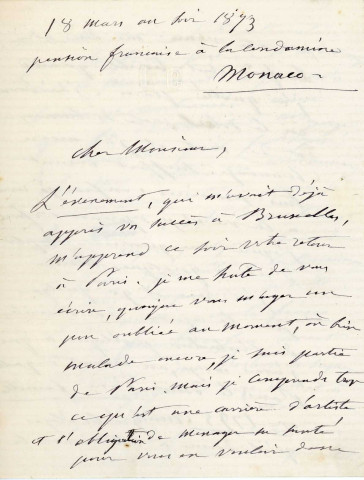 18 mars au soir 1873
pension française à la Condamine
Monaco
Cher Monsieur,
L'évènement, qui m'avait déjà
appris vos succès à Bruxelles,
m'apprend ce soir votre retour
à Paris. je me hâte de vous
écrire, quoique vous m'ayez un
peu oubliée au moment, où bien
malade encore, je suis partie
de Paris. Mais je comprends trop
ce qu'est une carrière d'artiste
et l'obligation de ménager sa santé
pour vous en vouloir